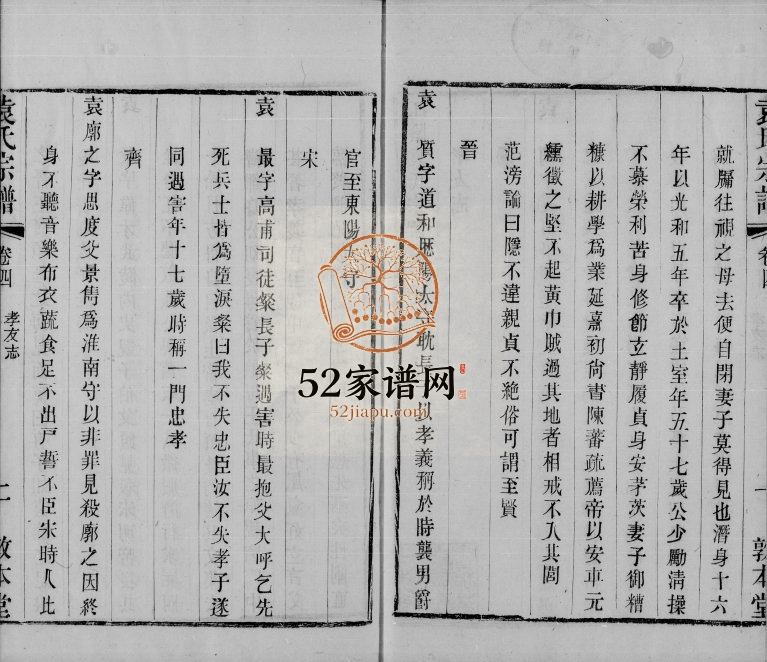 袁氏宗譜 卷四 一 敦本堂
就屬往視之母去便自閉妻子莫得見也潛身十六
年以光和五年卒於土室年五十七歲公少勵清操
不慕榮利苦身修節立靜履貞身安茅茨妻子御糟
糠以耕學爲業延嘉初尙書陳蕃疏薦帝以安車元
纁徵之堅不起黃巾賊過其地者相戒不入其閭
范滂論曰隱不違親貞不絶俗可謂至賢
晉
袁 質字道和歷陽太 耽 孝義稱於時襲男爵
官至東陽 守
宋
袁 最字高甫司徒粲長子粲遇害時最抱父大呼乞先
死兵士皆爲墮淚粲曰我不失忠臣汝不失孝子遂
同遇害年十七歲時稱一門忠孝
齊
袁廓之字思度父景雋爲淮南守以非罪見殺廓之因終
身不聽音樂布衣蔬食足不出戸誓不臣宋時人比
袁氏宗譜 卷四 孝友志 二 敦本堂
52家谱网
52jiapu.com